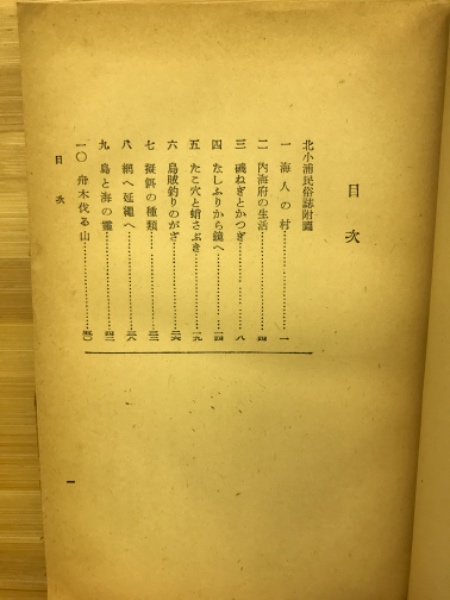 目次
北小浦民俗誌附圖
一 海人の村……一
二 内海府の生活……四
三 磯ねぎとかつぎ……八
四 なしふりから鏡へ……一四
五 たこ穴と蛸さぶき……一九
六 烏賊釣りのがざ……二六
七 擬餌の種類……三二
八 網へ延繩へ……三八
九 島と海の靈……四二
一〇 舟木伐る山……五〇
目次
一